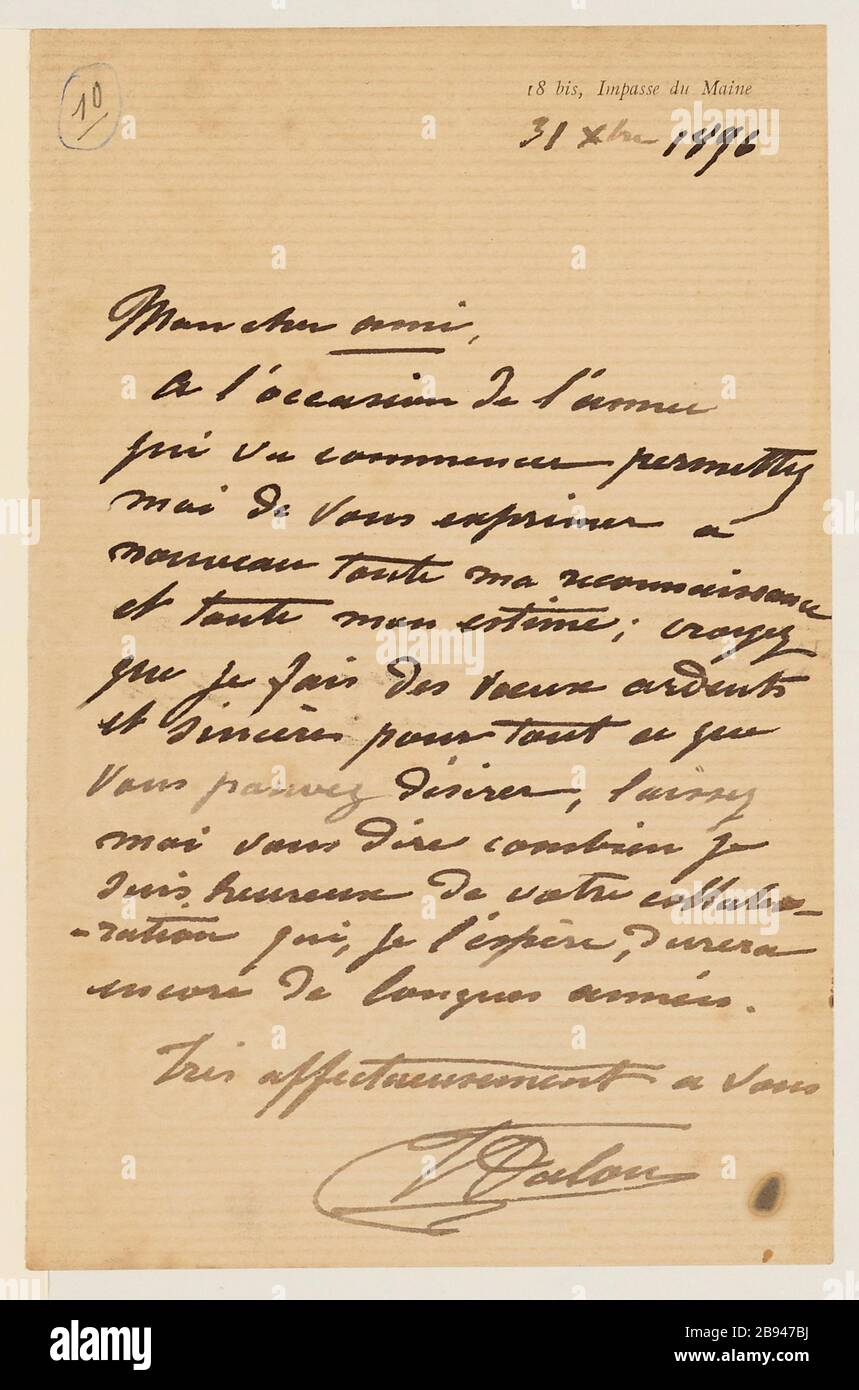 10
18 bis, Impasse du Maine
31 Xbre 1896
Mon cher ami,
A l'occasion de l'année
qui va commencer permettez
moi de vous exprimer à
nouveau toute ma reconnaissance
et toute mon estime; croyez
que je fais des vœux ardents
et sincères pour tout ce que
vous pouvez désirer, laissez
moi vous dire combien je
suis heureux de votre collabo-
-ration qui, je l'espère, durera
encore de longues années.
Très affectueusement a vous
JDalou
a alamy
alamy
Image ID: 2B947BJ
www.alamy.com